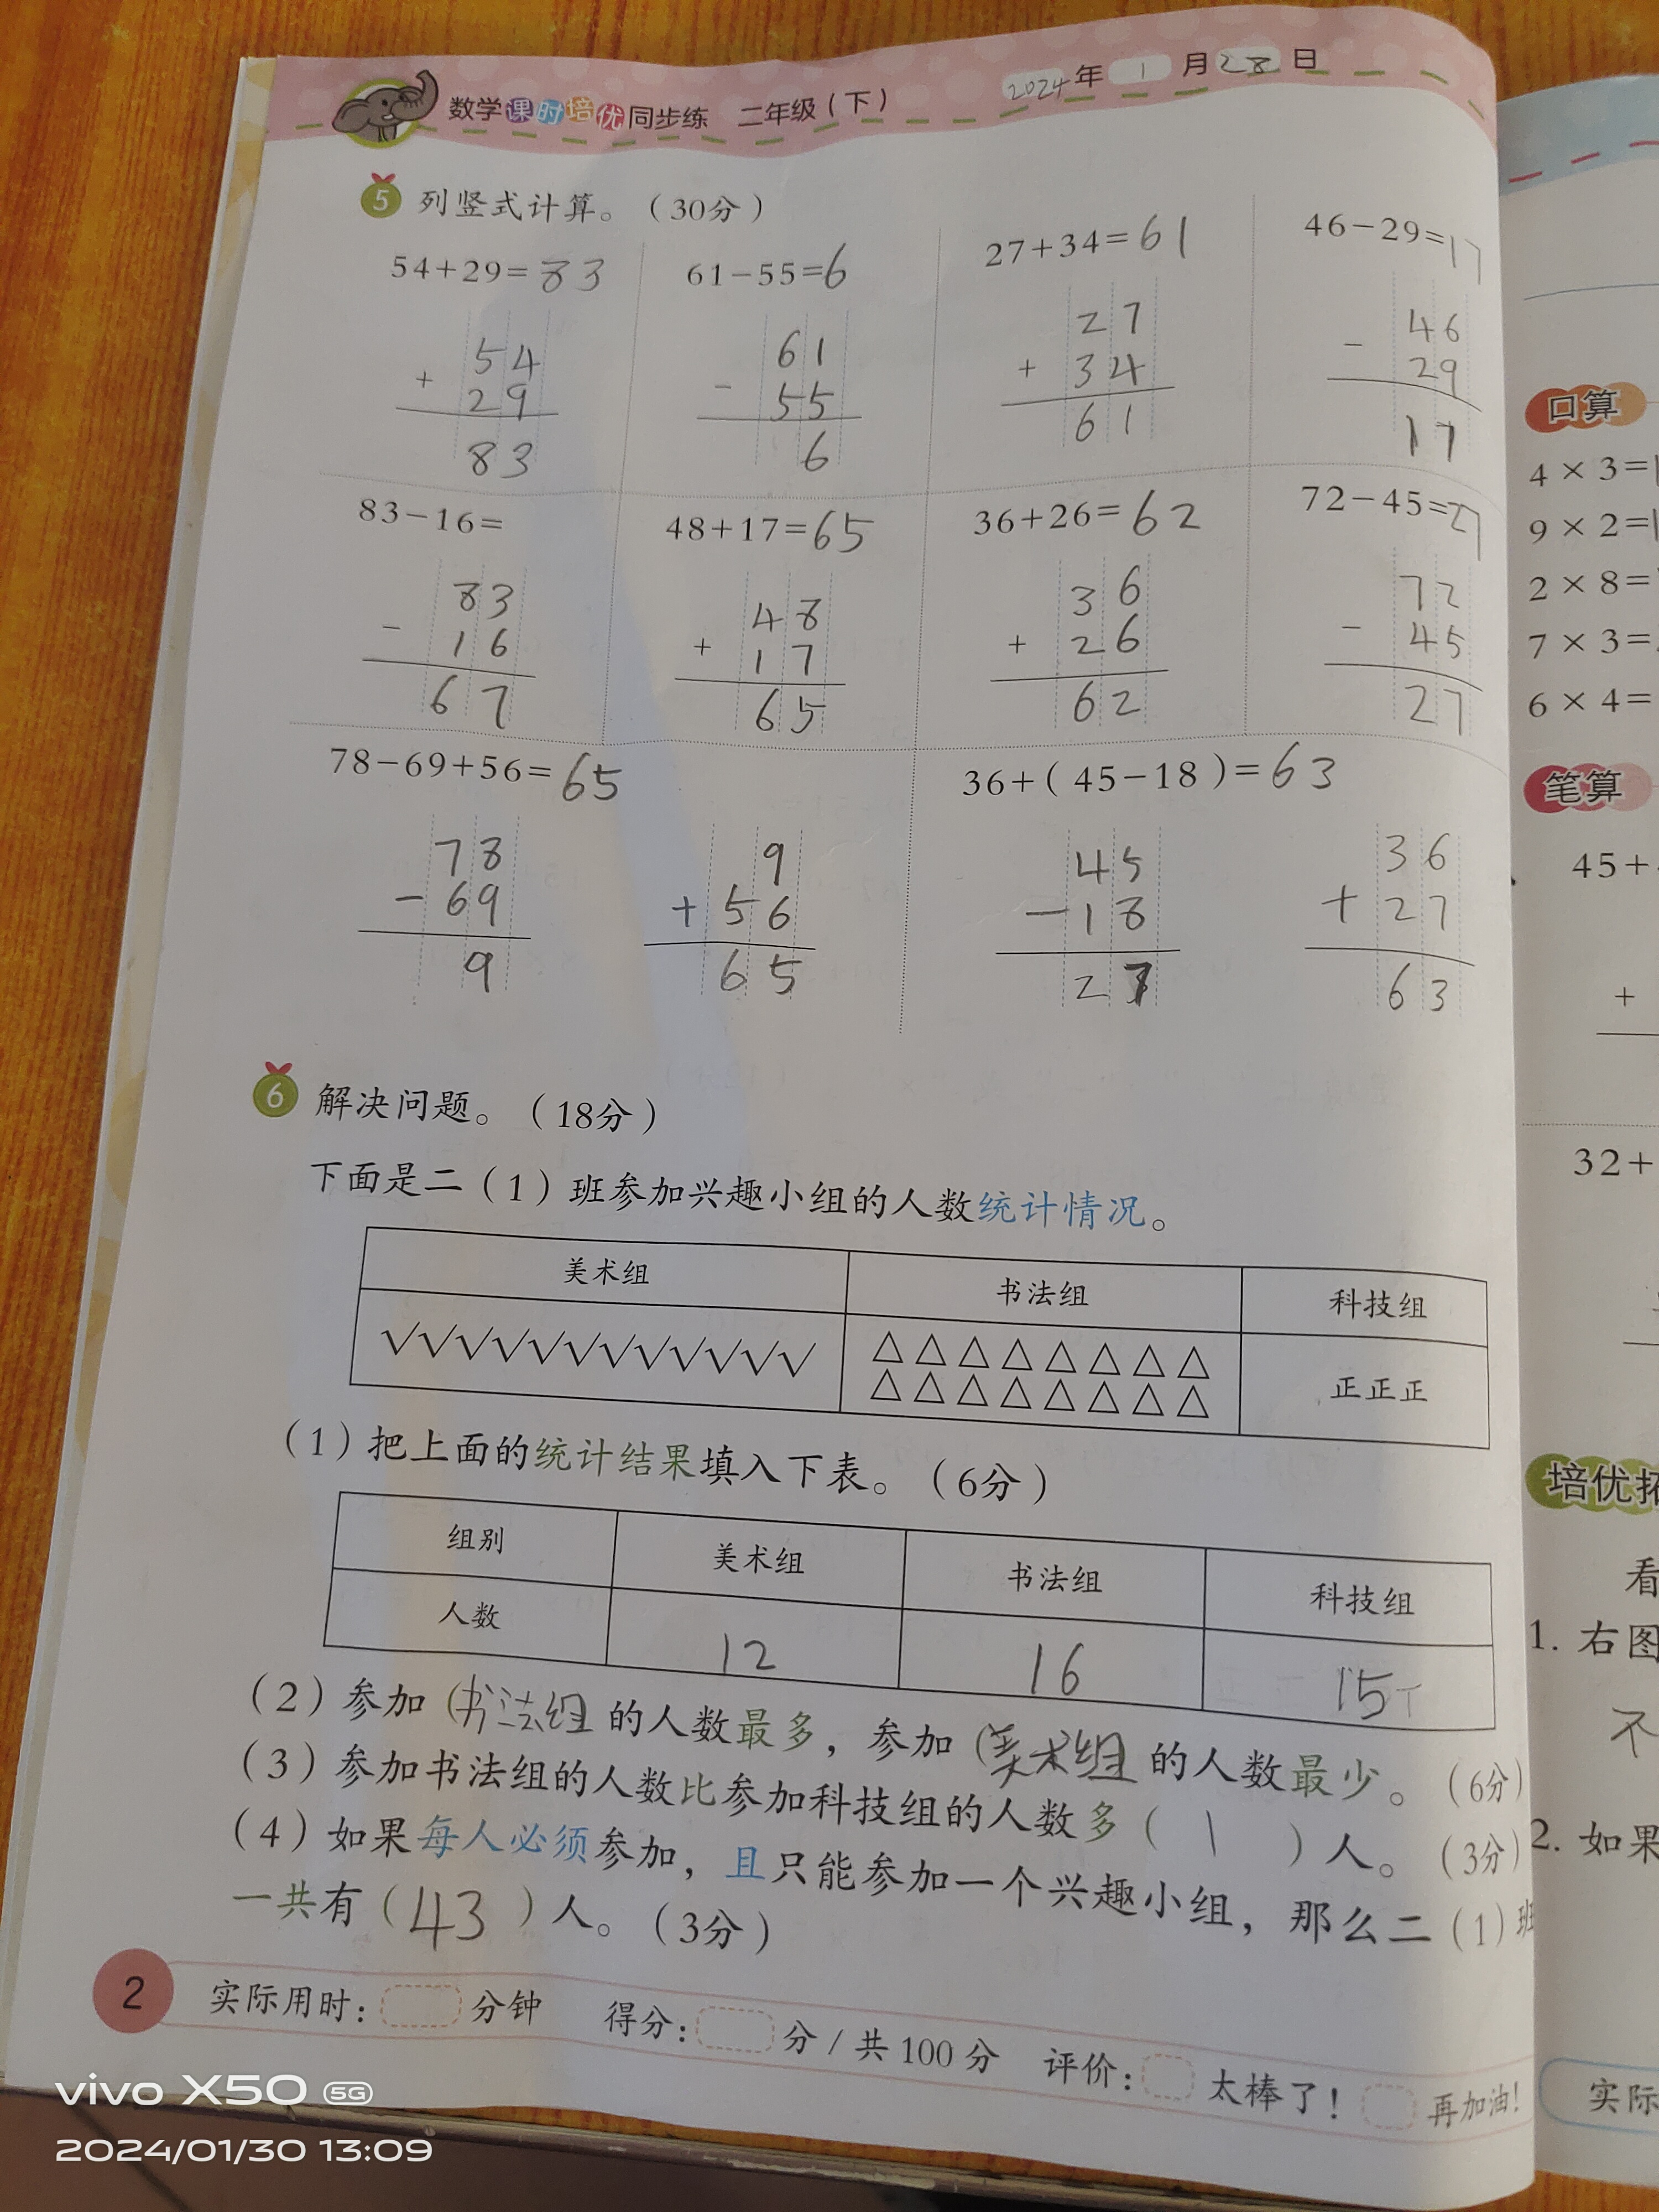 数学课时培优同步练 二年级（下） 2024年1月28日
5 列竖式计算。（30分）
54+29=83 61-55=6 27+34=61 46-29=17
54 61 27 46
+ 29 - 55 + 34 - 29
83 6 61 17
83-16= 48+17=65 36+26=62 72-45=27
83 48 36 72
- 16 + 17 + 26 - 45
67 65 62 27
78-69+56=65 36+(45-18)=63
78 9 45 36
- 69 + 56 - 18 + 27
9 65 27 63
6 解决问题。（18分）
下面是二（1）班参加兴趣小组的人数统计情况。
美术组 书法组 科技组
√√√√√√√√√√√√ △△△△△△△△
△△△△△△△△ 正正正
（1）把上面的统计结果填入下表。（6分）
组别 美术组 书法组 科技组
人数 12 16 15
（2）参加（书法组 的人数最多，参加（美术组 的人数最少。（6分）
（3）参加书法组的人数比参加科技组的人数多（1）人。（3分）
（4）如果每人必须参加，且只能参加一个兴趣小组，那么二（1）班
一共有（43）人。（3分）
2 实际用时： 分钟 得分： 分/共100分 评价： 太棒了！ 再加油！
口算
4×3=1
9×2=1
2×8=
7×3=
6×4=
笔算
45+
+
32+
培优拓
看
1. 右图
不
2. 如果
实际
vivo X50 5G
2024/01/30 13:09